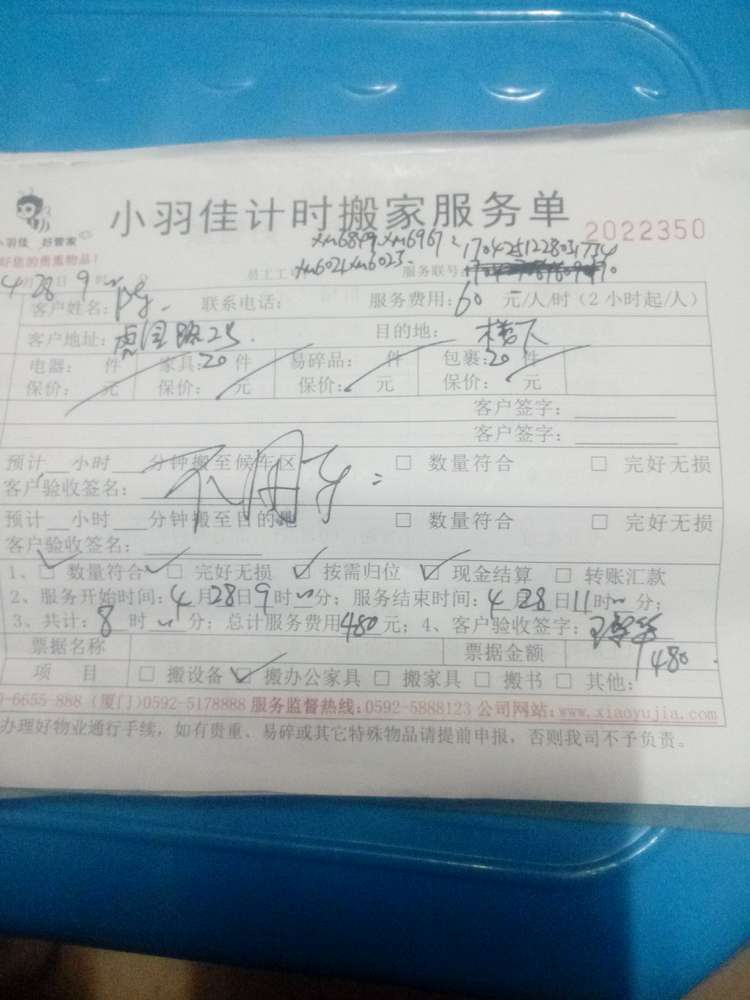 小羽佳计时搬家服务单 2022350
小羽佳 好管家
好您的贵重物品!
xm6849、xm6967、1704251228031734
xm6021xm6023. 服务联号:
4 28日 9时
客户姓名: 联系电话: 服务费用:60元/人/时(2小时起/人)
客户地址:虎园路25. 目的地:楼下
电器: 件 家具:20件 易碎品: 件 包裹:20件
保价: 元 保价: 元 保价: 元 保价: 元
客户签字:
客户签字:
预计__小时__分钟搬至候车区 □ 数量符合 □ 完好无损
不用车
客户验收签名:
预计__小时__分钟搬至目的地 □ 数量符合 □ 完好无损
客户验收签名:
1、☑ 数量符合 ☑ 完好无损 ☑ 按需归位 ☑ 现金结算 □ 转账汇款
2、服务开始时间:4月28日9时 分; 服务结束时间:4月28日11时 分;
3、共计:8时 分; 总计服务费用480元; 4、客户验收签字:
票据名称 票据金额 480.
项 目 □ 搬设备 ☑ 搬办公家具 □ 搬家具 □ 搬书 □ 其他:
0-6655-888 (厦门)0592-5178888 服务监督热线:0592-5888123 公司网站:www.xiaoyujia.com
办理好物业通行手续,如有贵重、易碎或其它特殊物品请提前申报,否则我司不予负责。